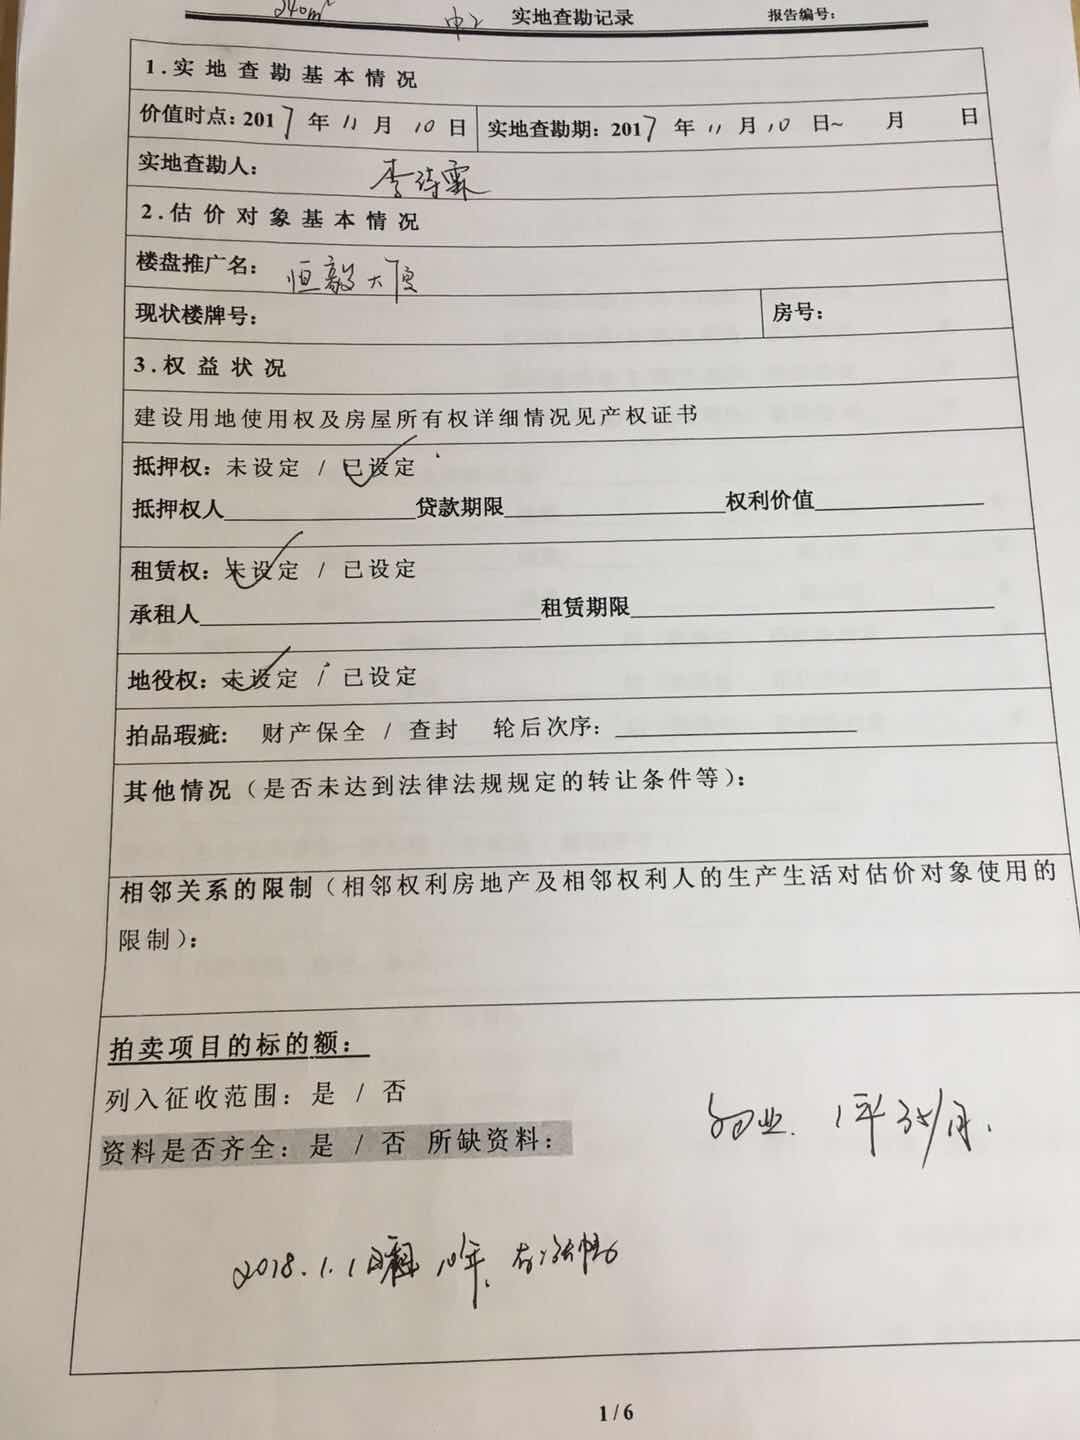 240m² 实地查勘记录 报告编号:
1.实地查勘基本情况
价值时点:2017年11月10日 实地查勘期:2017年11月10日~ 月 日
实地查勘人:
2.估价对象基本情况
楼盘推广名: 恒毅大厦
现状楼牌号: 房号:
3.权益状况
建设用地使用权及房屋所有权详细情况见产权证书
抵押权:未设定 / 已设定
抵押权人 贷款期限 权利价值
租赁权:未设定 / 已设定
承租人 租赁期限
地役权:未设定 / 已设定
拍品瑕疵: 财产保全 / 查封 轮后次序:
其他情况(是否未达到法律法规规定的转让条件等):
相邻关系的限制(相邻权利房地产及相邻权利人的生产生活对估价对象使用的
限制):
拍卖项目的标的额:
列入征收范围:是 / 否
物业. 1平3步/月.
资料是否齐全:是 / 否 所缺资料:
2018.1.1 10年
1/6